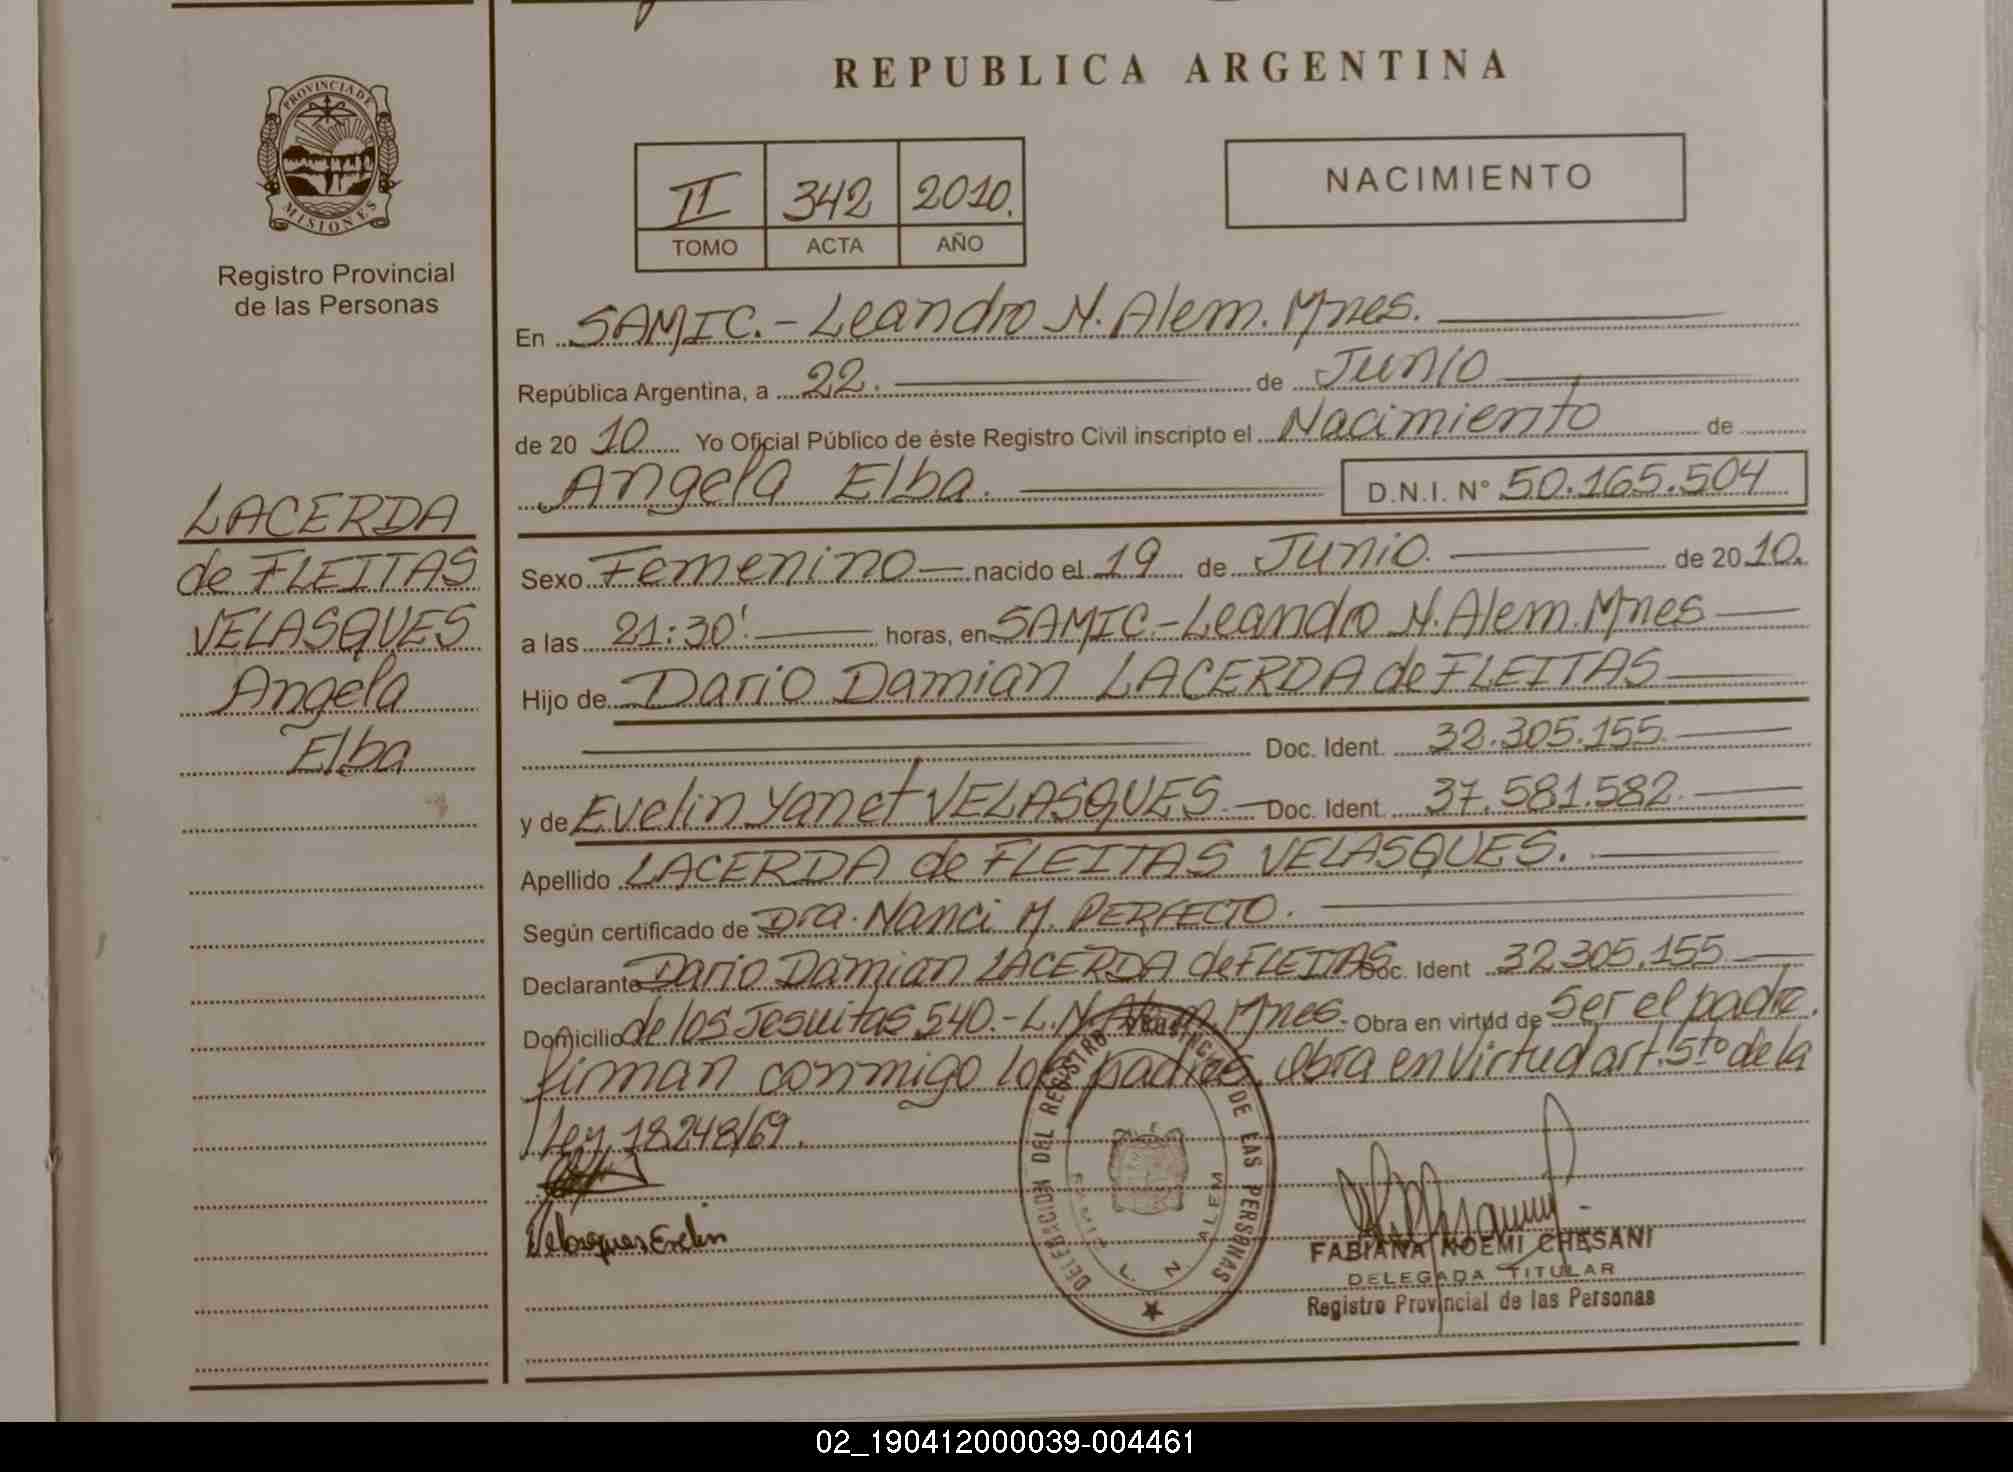 REPUBLICA ARGENTINA
PROVINCIA DE
MISIONES
Registro Provincial
de las Personas
II 342 2010.
TOMO ACTA AÑO
NACIMIENTO
LACERDA
de FLEITAS
VELASQUES
Angela
Elba
En SAMIC.- Leandro N. Alem. Mnes.
República Argentina, a 22. de Junio
de 2010 Yo Oficial Público de éste Registro Civil inscripto el Nacimiento de
Angela Elba. D.N.I. N° 50.165.504
Sexo Femenino nacido el 19 de Junio. de 2010.
a las 21:30' horas, en SAMIC.-Leandro N. Alem. Mnes
Hijo de Dario Damian LACERDA de FLEITAS
Doc. Ident. 32.305.155.
y de Evelin Yanet VELASQUES. Doc. Ident. 37.581.582.
Apellido LACERDA de FLEITAS VELASQUES.
Según certificado de Dra. Nanci M. PERFECTO.
Declarante Dario Damian LACERDA de FLEITAS Doc. Ident 32.305.155.
Domicilio de los Jesuitas 540.- L.N. Alem. Mnes.- Obra en virtud de Ser el padre.
firman conmigo los padres. Obra en virtud art. 5to de la
Ley 18.248/69.
Velasques Evelin
DELEGACION DEL REGISTRO PROVINCIAL DE LAS PERSONAS
SAMIC L N ALEM
FABIANA NOEMI CHESANI
DELEGADA TITULAR
Registro Provincial de las Personas
02_190412000039-004461